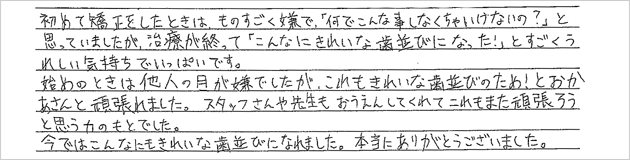 初めて矯正をしたときは、ものすごく嫌で、「何でこんな事しなくちゃいけないの?」と
思っていましたが、治療が終って「こんなにきれいな歯並びになった!」とすごくう
れしい気持ちでいっぱいです。
始めのときは他人の目が嫌でしたが、これもきれいな歯並びのため!とおか
あさんと頑張れました。スタッフさんや先生もおうえんしてくれてこれもまた頑張ろう
と思う力のもとでした。
今ではこんなにもきれいな歯並びになれました。本当にありがとうございました。